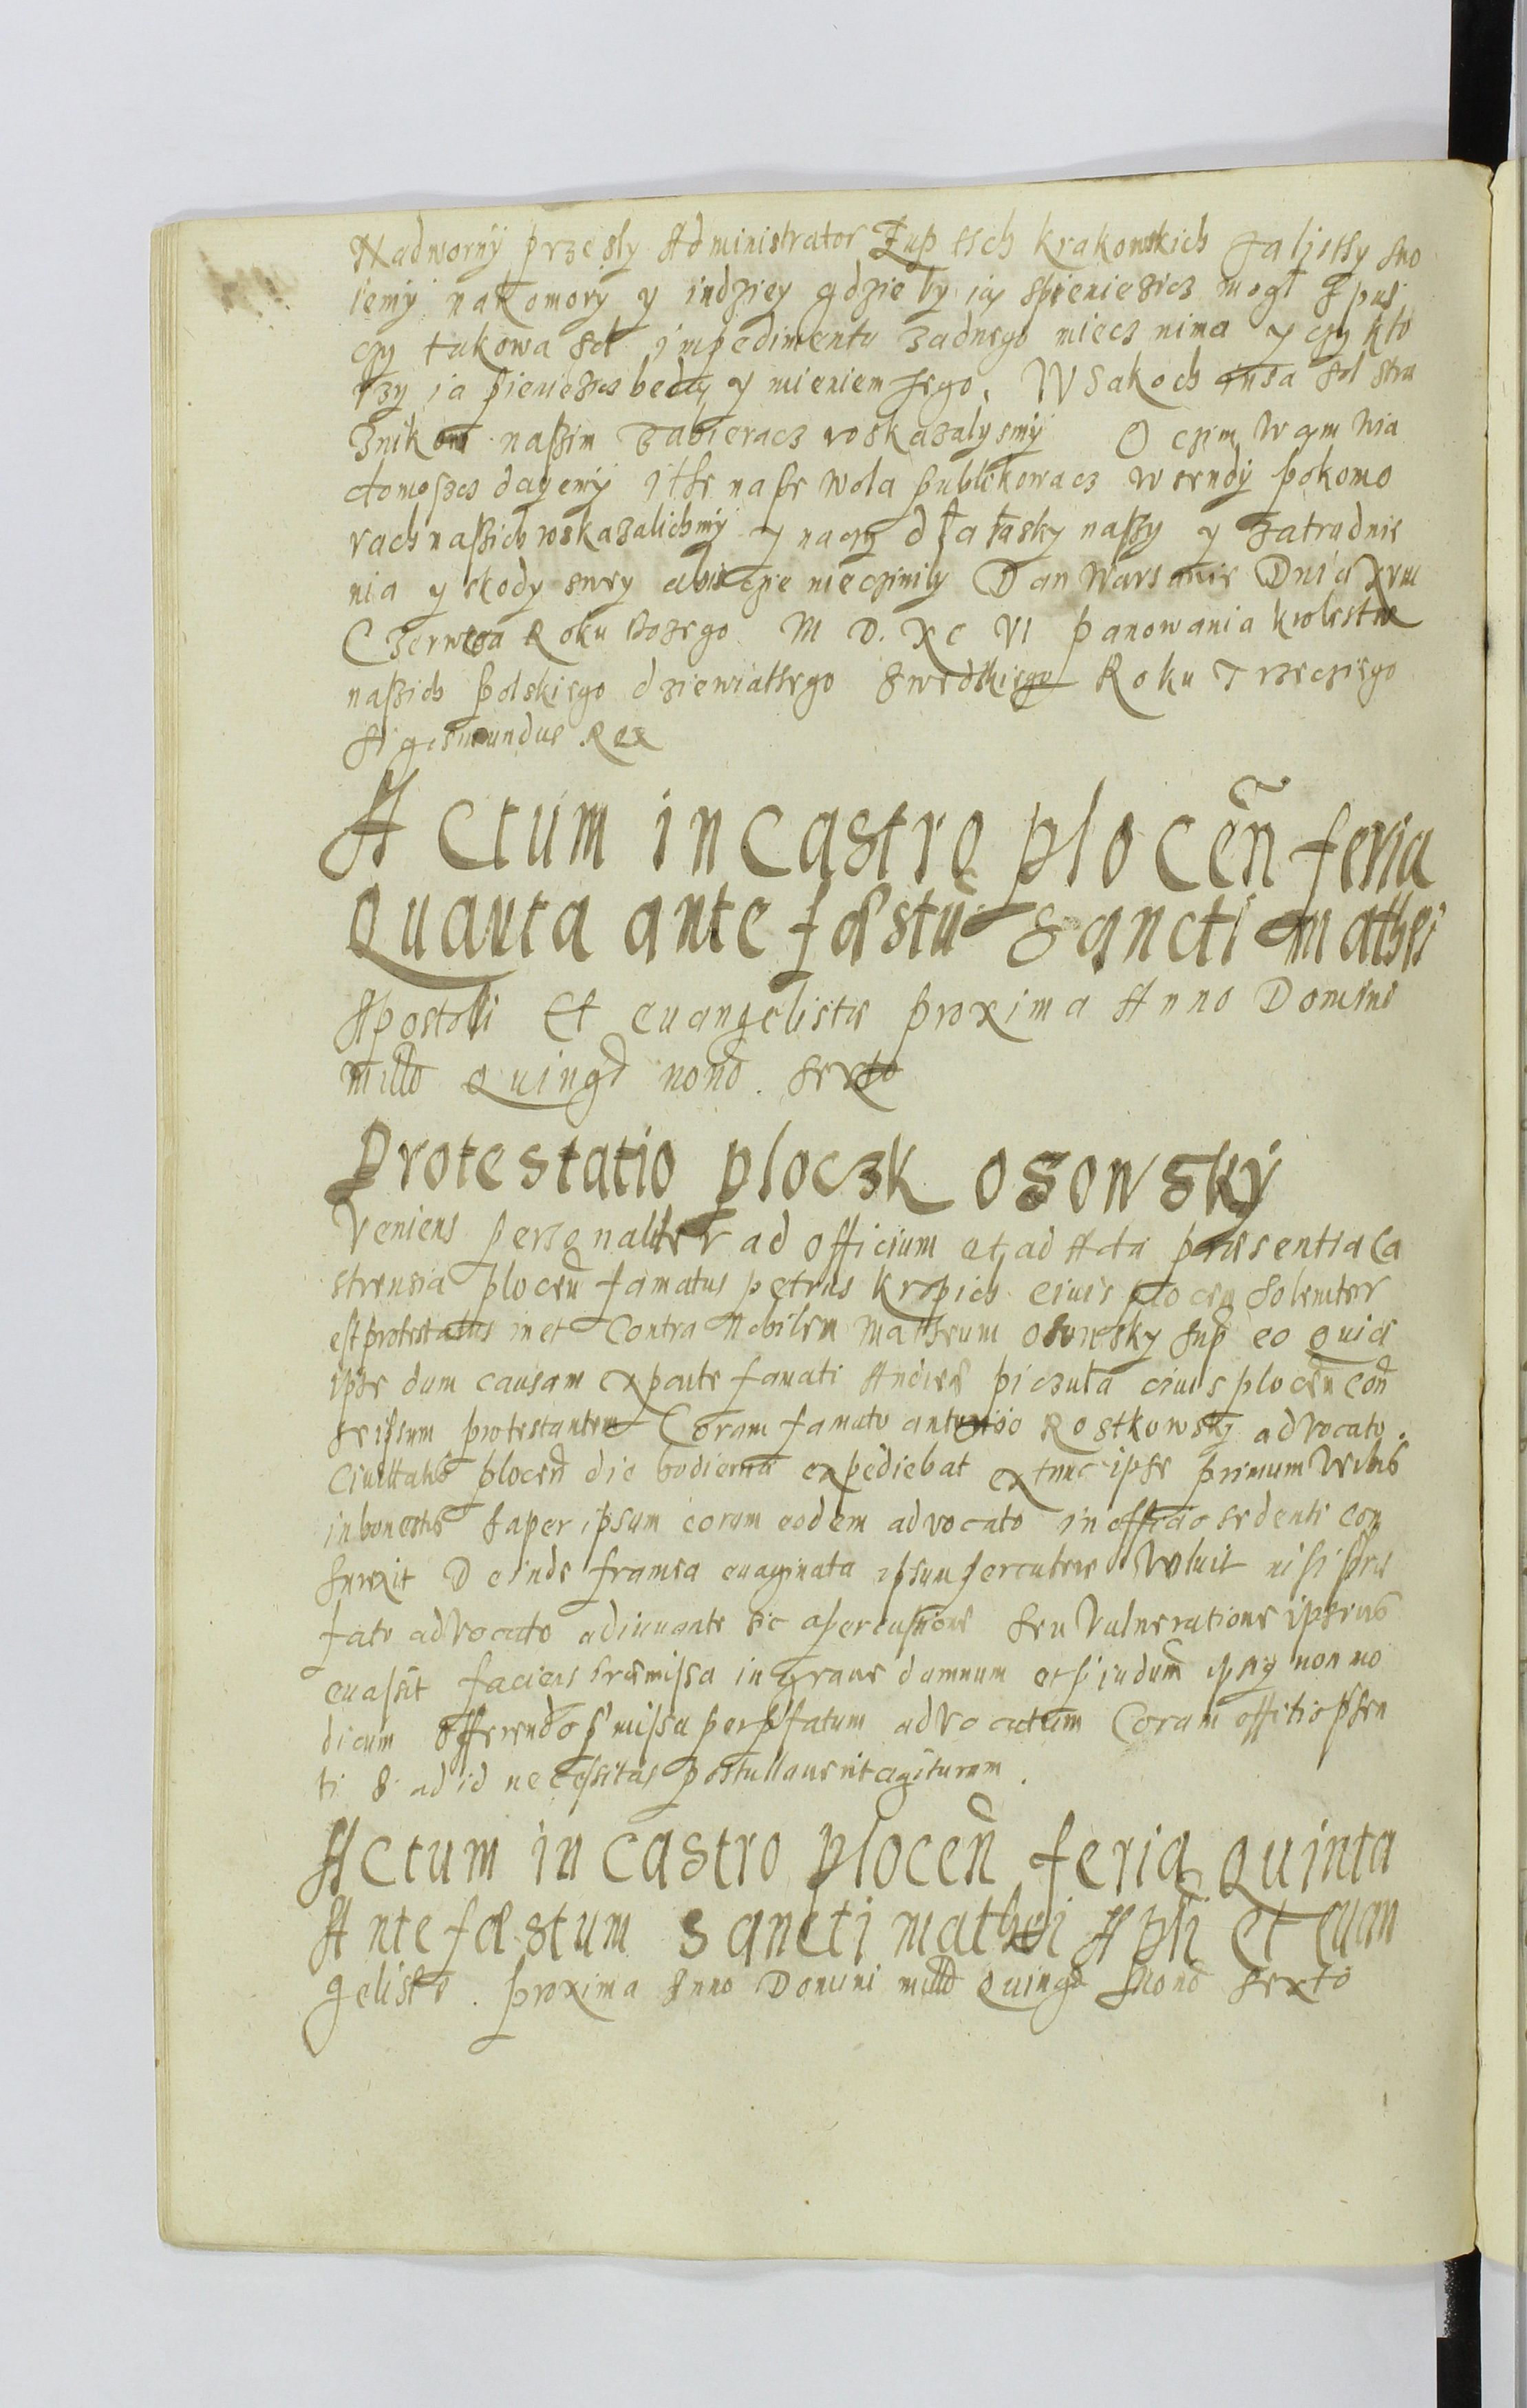 Nadworny przesly Administrator Zup tsch krakowskich Zalistsy swo
iemy nakomory y indziey gdzie by ią spieniezicz mogł
czy takowa sol impedimentu zadnego miecz nima y czy kto
rzy ia pieniezicz bedą y mieniem iego. Wsakoch insa sol stra
znikom naßim zabieracz roskazalysmÿ O czim wam wia
domosczs dayemÿ ithe naße wola publikowacz wsendÿ pokomo
rach naßich roskazalichmÿ y naczy dla łasky naßy y zatrudnie
nia y skody swey abisczie nieczinily Dan Warsawie Dnia XVIII
Czerwcza Roku Bozego M D. XC VI panowania krolestw
naßich polskiego dziewiathego Swedskiego Roku Trzecziego
Sigesmundus Rex
Actum in Castro plocen̄ feria
Quarta ante fæstū Sancti Mathei
Apostoli Et euangelistæ proxima Anno Domini
milld Quingd nond. sexto
Protestatio ploczk osowskÿ
Veniens personaliter ad officium et ad Acta præsentia Ca
strensia plocen̄ famatus petrus kropich ciuis plocen̄ solemter
est protestatus in et Contra Nobilem Matheum osowsky sup eo Quia
ipse dum causam ex parte famati Andreæ piczuła ciuis plocen̄ con
se ipsum protestantem Coram famato antonio Rostkowsky advocato
Ciuitatis plocen̄ die hodierna expediebat ex tunc ipse primum verbis
inhonestis super ipsum coram eodem advocato in officio sedenti con
surexit Deinde framea euaginata ipsum percutere voluit nisi præ
fato advocato adiuuante sic a percussione seu vulneratione ipsius
euasit faciens præmissa in graue damnum et piudum ipsiq non mo
dicum offerendo pmissa per pfatum advocatum Coram offitio psen
ti S ad id necessitas postullauerit agiturum.
Actum in Castro plocen̄ feria Quinta
Ante fæstum Sancti Mathei Apli et Euan
gelistæ. proxima Anno Domini milld Quingd Nond sexto